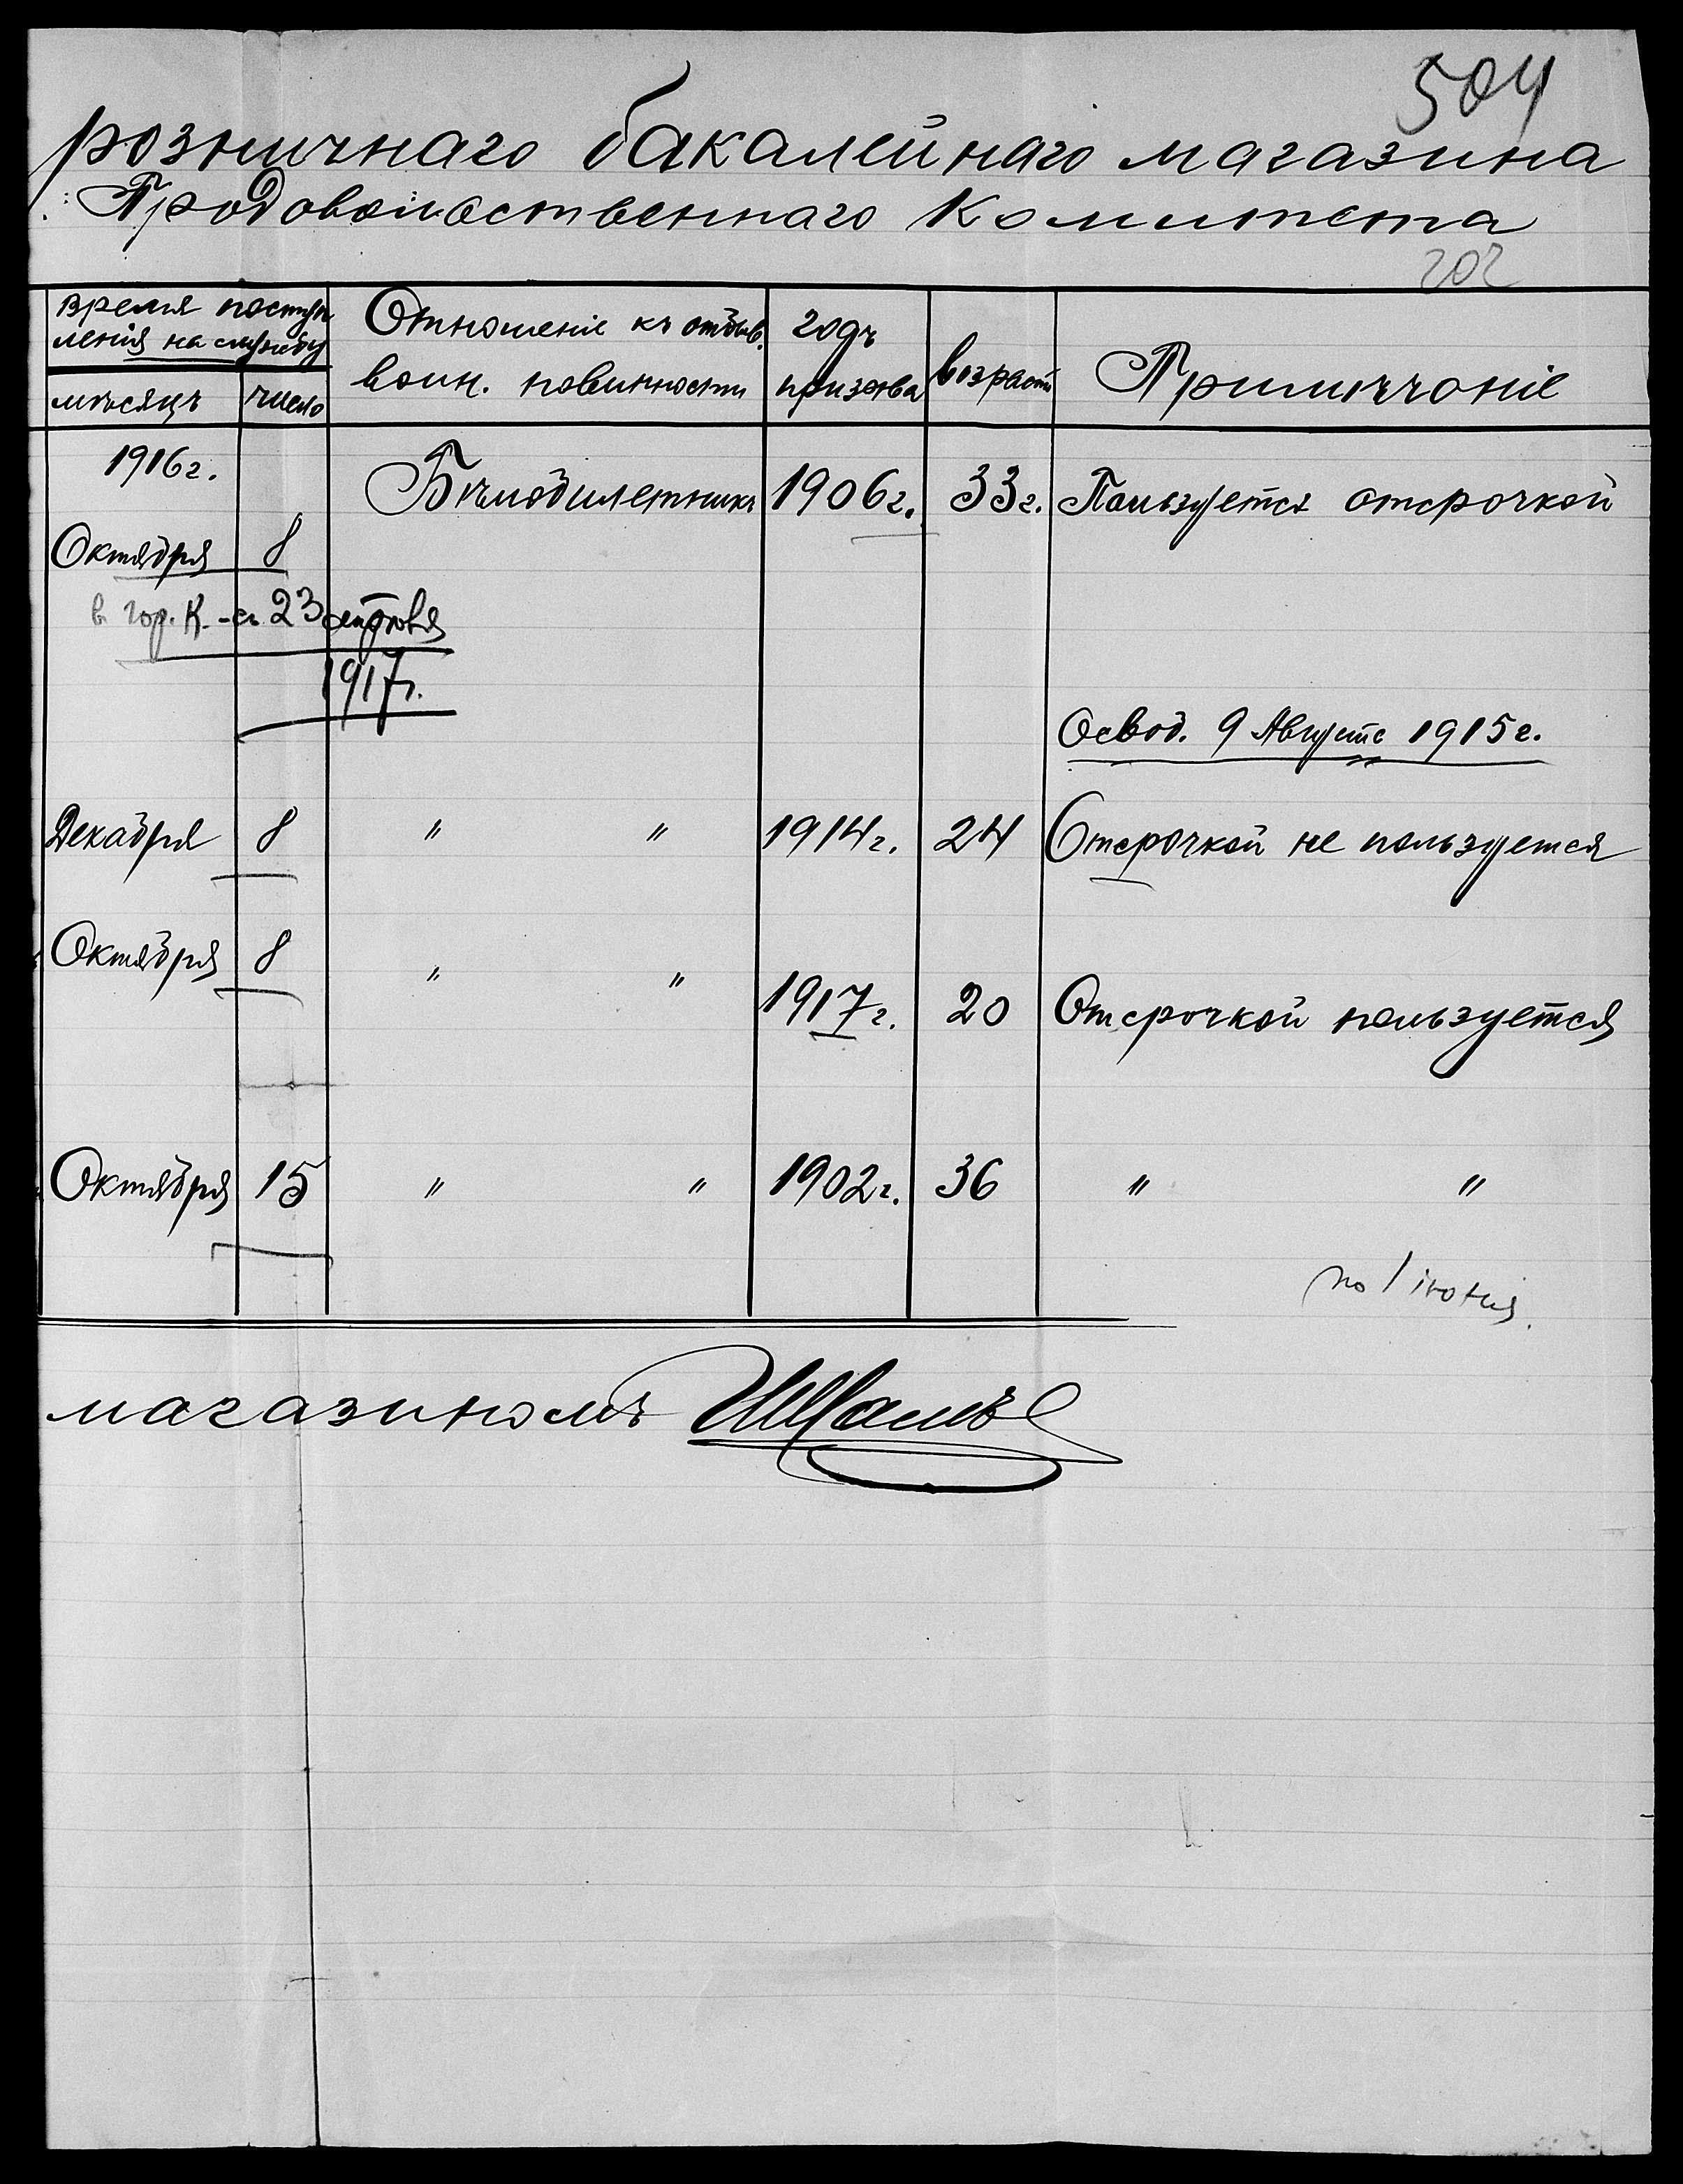 504
розничнаго бакалейнаго магазина
Продовольственнаго Комитета
202
время поступ
ленія на службу
мѣсяцъ
число
Отношеніе къ отбыв.
воин. повинности
годъ
призыва
возрастъ
Примѣчаніе
1916г.
Октября 8
Бѣлобилетникъ 1906г. 33г. Пользуется отсрочкой
в гор. К. -съ 23 октября
1917г.
Освоб. 9 Августа 1915г.
Декабря 8 " " 1914г. 24 Отсрочкой не пользуется
Октября 8 " " 1917г. 20 Отсрочкой пользуется
Октября 15 " " 1902г. 36 " "
по 1 іюня.
магазиномъ